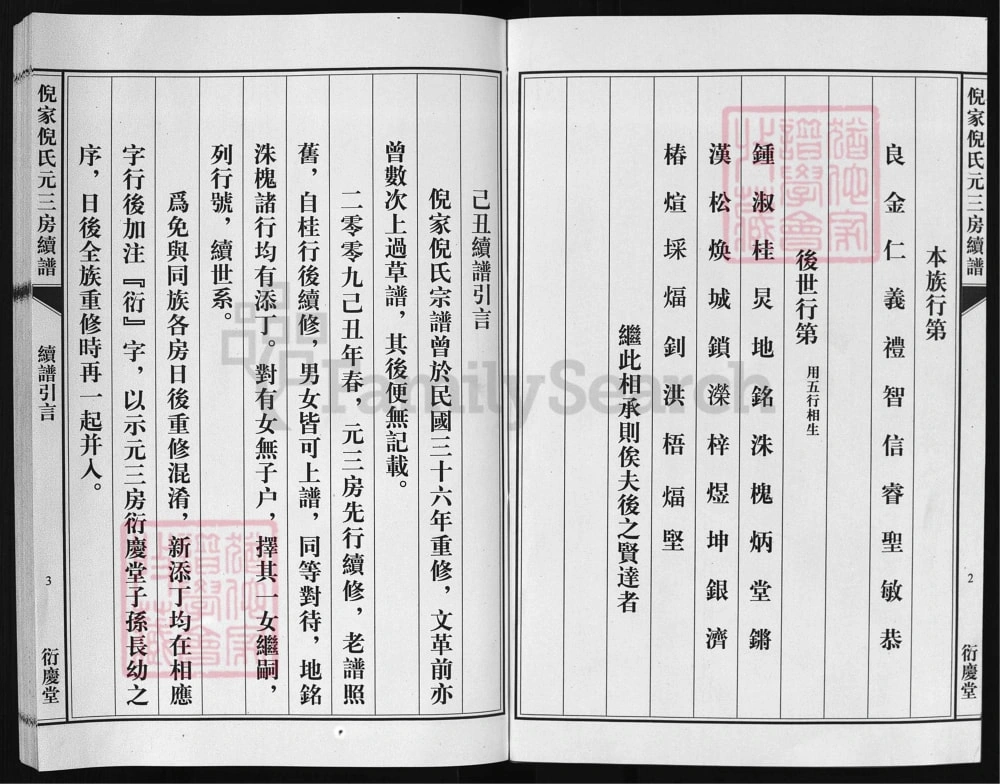 倪家倪氏元三房續譜
2
衍慶堂
本族行第
良金仁義禮智信睿聖敏恭
後世行第 用五行相生
鍾淑桂炅地銘洙槐炳堂鏘
漢松煥城鎖濼梓煜坤銀濟
椿煊埰煏釗洪梧煏堅
繼此相承則俟夫後之賢達者
己丑續譜引言
倪家倪氏宗譜曾於民國三十六年重修，文革前亦
曾數次上過草譜，其後便無記載。
二零零九己丑年春，元三房先行續修，老譜照
舊，自桂行後續修，男女皆可上譜，同等對待，地銘
洙槐諸行均有添丁。對有女無子户，擇其一女繼嗣，
列行號，續世系。
爲免與同族各房日後重修混淆，新添丁均在相應
字行後加注『衍』字，以示元三房衍慶堂子孫長幼之
序，日後全族重修時再一起并入。
倪家倪氏元三房續譜
續譜引言
3
衍慶堂
FamilySearch